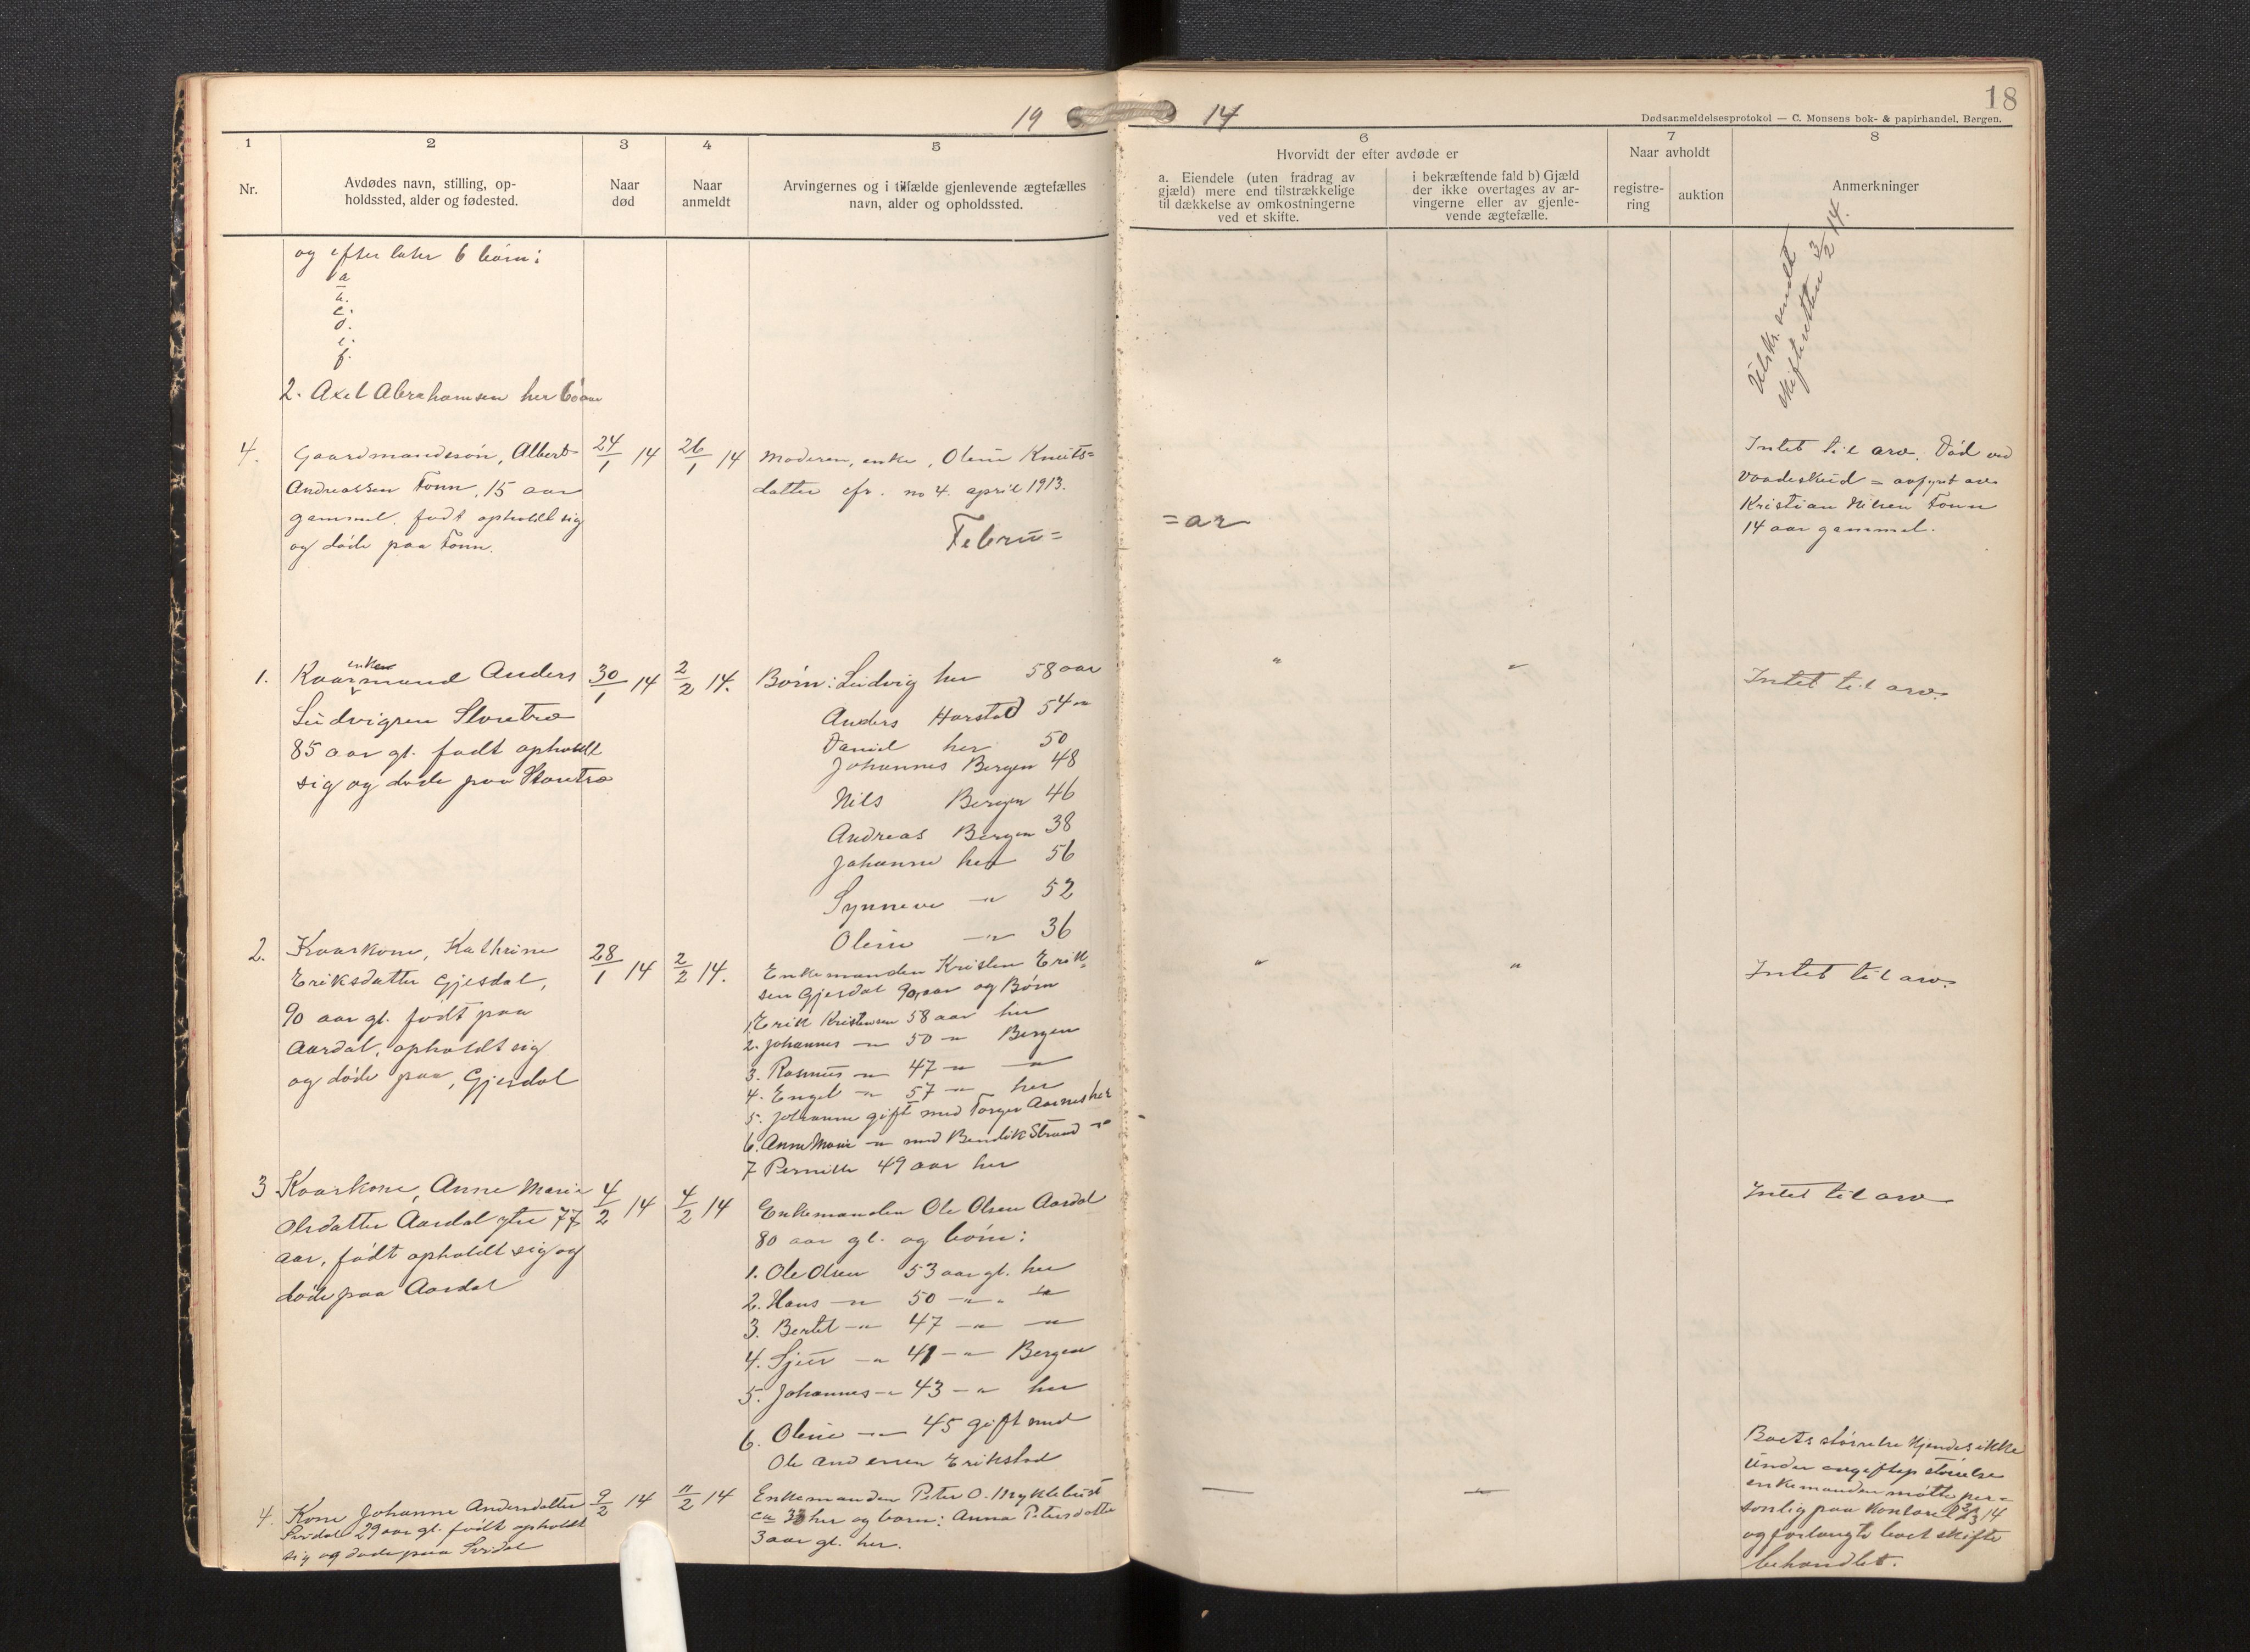 19 14
18
Dødsanmeldelsesprotokol — C. Monsens bok- & papirhandel, Bergen.
1
Nr.
2
Avdødes navn, stilling, op-
holdssted, alder og fødested.
3
Naar
død
4
Naar
anmeldt
5
Arvingernes og i tilfælde gjenlevende ægtefælles
navn, alder og opholdssted.
6
Hvorvidt der efter avdøde er
a. Eiendele (uten fradrag av
gjæld) mere end tilstrækkelige
til dækkelse av omkostningerne
ved et skifte.
i bekræftende fald b) Gjæld
der ikke overtages av ar-
vingerne eller av gjenle-
vende ægtefælle.
7
Naar avholdt
registre-
ring
auktion
8
Anmerkninger
og efterlater 6 børn:
a
b.
c.
d.
e.
f.
2. Axel Abrahamsen her 60 aar
Utskr. sendt
skifteretten 3/2 14.
4.
Gaardmandssøn, Albert
Andreassen Tonn, 15 aar
gammel, født opholdt sig
og døde paa Tonn.
24/1 14
26/1 14
Moderen, enke, Oline Knuts=
datter cfr. no 4. april 1913.
Intet til arv. Død ved
vaadeskud = avfyrt av
Kristian Nilsen Tonn
14 aar gammel.
Febru=
=ar
1.
Kaarenkemand Anders
Ludvigsen Storetræ
85 aar gl. født opholdt
sig og døde paa Storetræ
30/1 14
2/2 14.
Børn: Ludvig her 58 aar
Anders Harstad 54 "
Daniel her 50
Johannes Bergen 48
Nils Bergen 46
Andreas Bergen 38
Johanne her 56
Synneve —"— 52
Oline —"— 36
" "
Intet til arv.
2.
Kaarkone, Kathrine
Eriksdatter Gjesdal,
90 aar gl. født paa
Aardal, opholdt sig
og døde paa, Gjesdal
28/1 14
2/2 14.
Enkemanden Kristen Erik=
sen Gjesdal 90 aar og Børn
1. Erik Kristensen 58 aar her
2. Johannes —"— 50 —"— Bergen
3. Rasmus —"— 47 —"— —"—
4. Engel —"— 57 —"— her
5. Johanne gift med Torger Aarnes her
6. Anne Marie —"— med Bendik Strand —"—
7 Pernille 49 aar her
" "
Intet til arv.
3
Kaarkone, Anne Marie
Olsdatter Aardal ytre 77
aar, født opholdt sig og
døde paa Aardal
4/2 14
4/2 14
Enkemanden Ole Olsen Aardal
80 aar gl. og børn:
1. Ole Olsen 53 aar gl. her
2. Hans —"— 50 —"— "
3. Bertel —"— 47 —"— —"—
4. Sjur —"— 41 —"— Bergen
5. Johannes —"— 43 —"— her
6. Oline —"— 45 gift med
Ole Andersen Erikstad
Intet til arv
4.
Kone Johanne Andersdatter
29 aar gl. født opholdt
sig og døde paa
9/2 14
11/2 14
Enkemanden Peter O. Myklebust
ca 33 her og barn: Anna Petersdatter
3 aar gl. her.
— —
Boets størrelse kjendes ikke
Under størrelse
enkemanden møtte per=
sonlig paa kontoret 14
og forlangte boet skifte
behandlet.